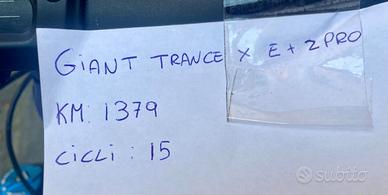 GIANT TRANCE X E+ 2 PRO
KM: 1379
CICLI: 15
subito